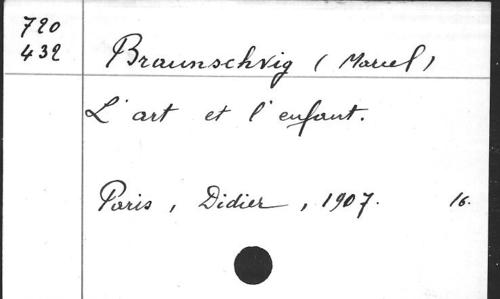 720
432
Braunschvig (Marcel)
L'art et l'enfant.
Paris, Didier, 1907. 16.